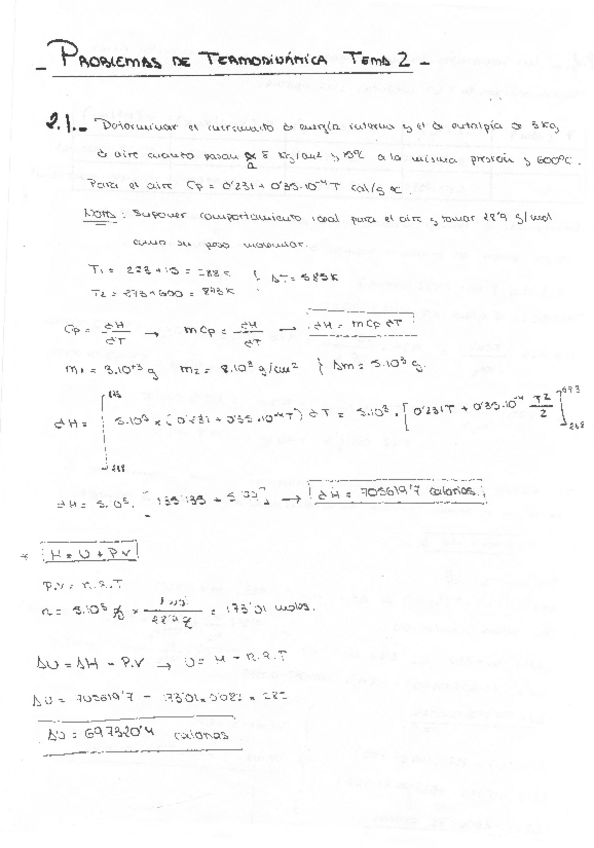 - PROBLEMAS DE TERMODINÁMICA TEMA 2 -
2.1.- Determinar el incremento de energía interna y el de entalpía de 5 kg
de aire cuando pasan de 8 kg/cm2 y 15ºC a la misma presión y 600ºC.
Para el aire Cp = 0'231 + 0'35·10⁻⁴T cal/g ºK.
NOTA: Suponer comportamiento ideal para el aire y tomar 28'9 g/mol
como su peso molecular.
T1 = 273 + 15 = 288 K } ΔT = 585 K
T2 = 273 + 600 = 873 K
Cp = dH/dT → mCp = dH/dT → dH = mCp dT
m1 = 3·10⁺³ g m2 = 8·10³ g/cm² } Δm = 5·10³ g.
dH = 5·10³ × (0'231 + 0'35·10⁻⁴T) dT = 5·10³ · [0'231T + 0'35·10⁻⁴ T²/2]
→ dH = 705619'7 calorías.
* H = U + P.V
P.V = n.R.T
n = × = 173'01 moles.
ΔU = ΔH - P.V → U = H - n.R.T
ΔU = 705619'7 - 173'01 × 0'082 ×
ΔU = 697320'4 calorías